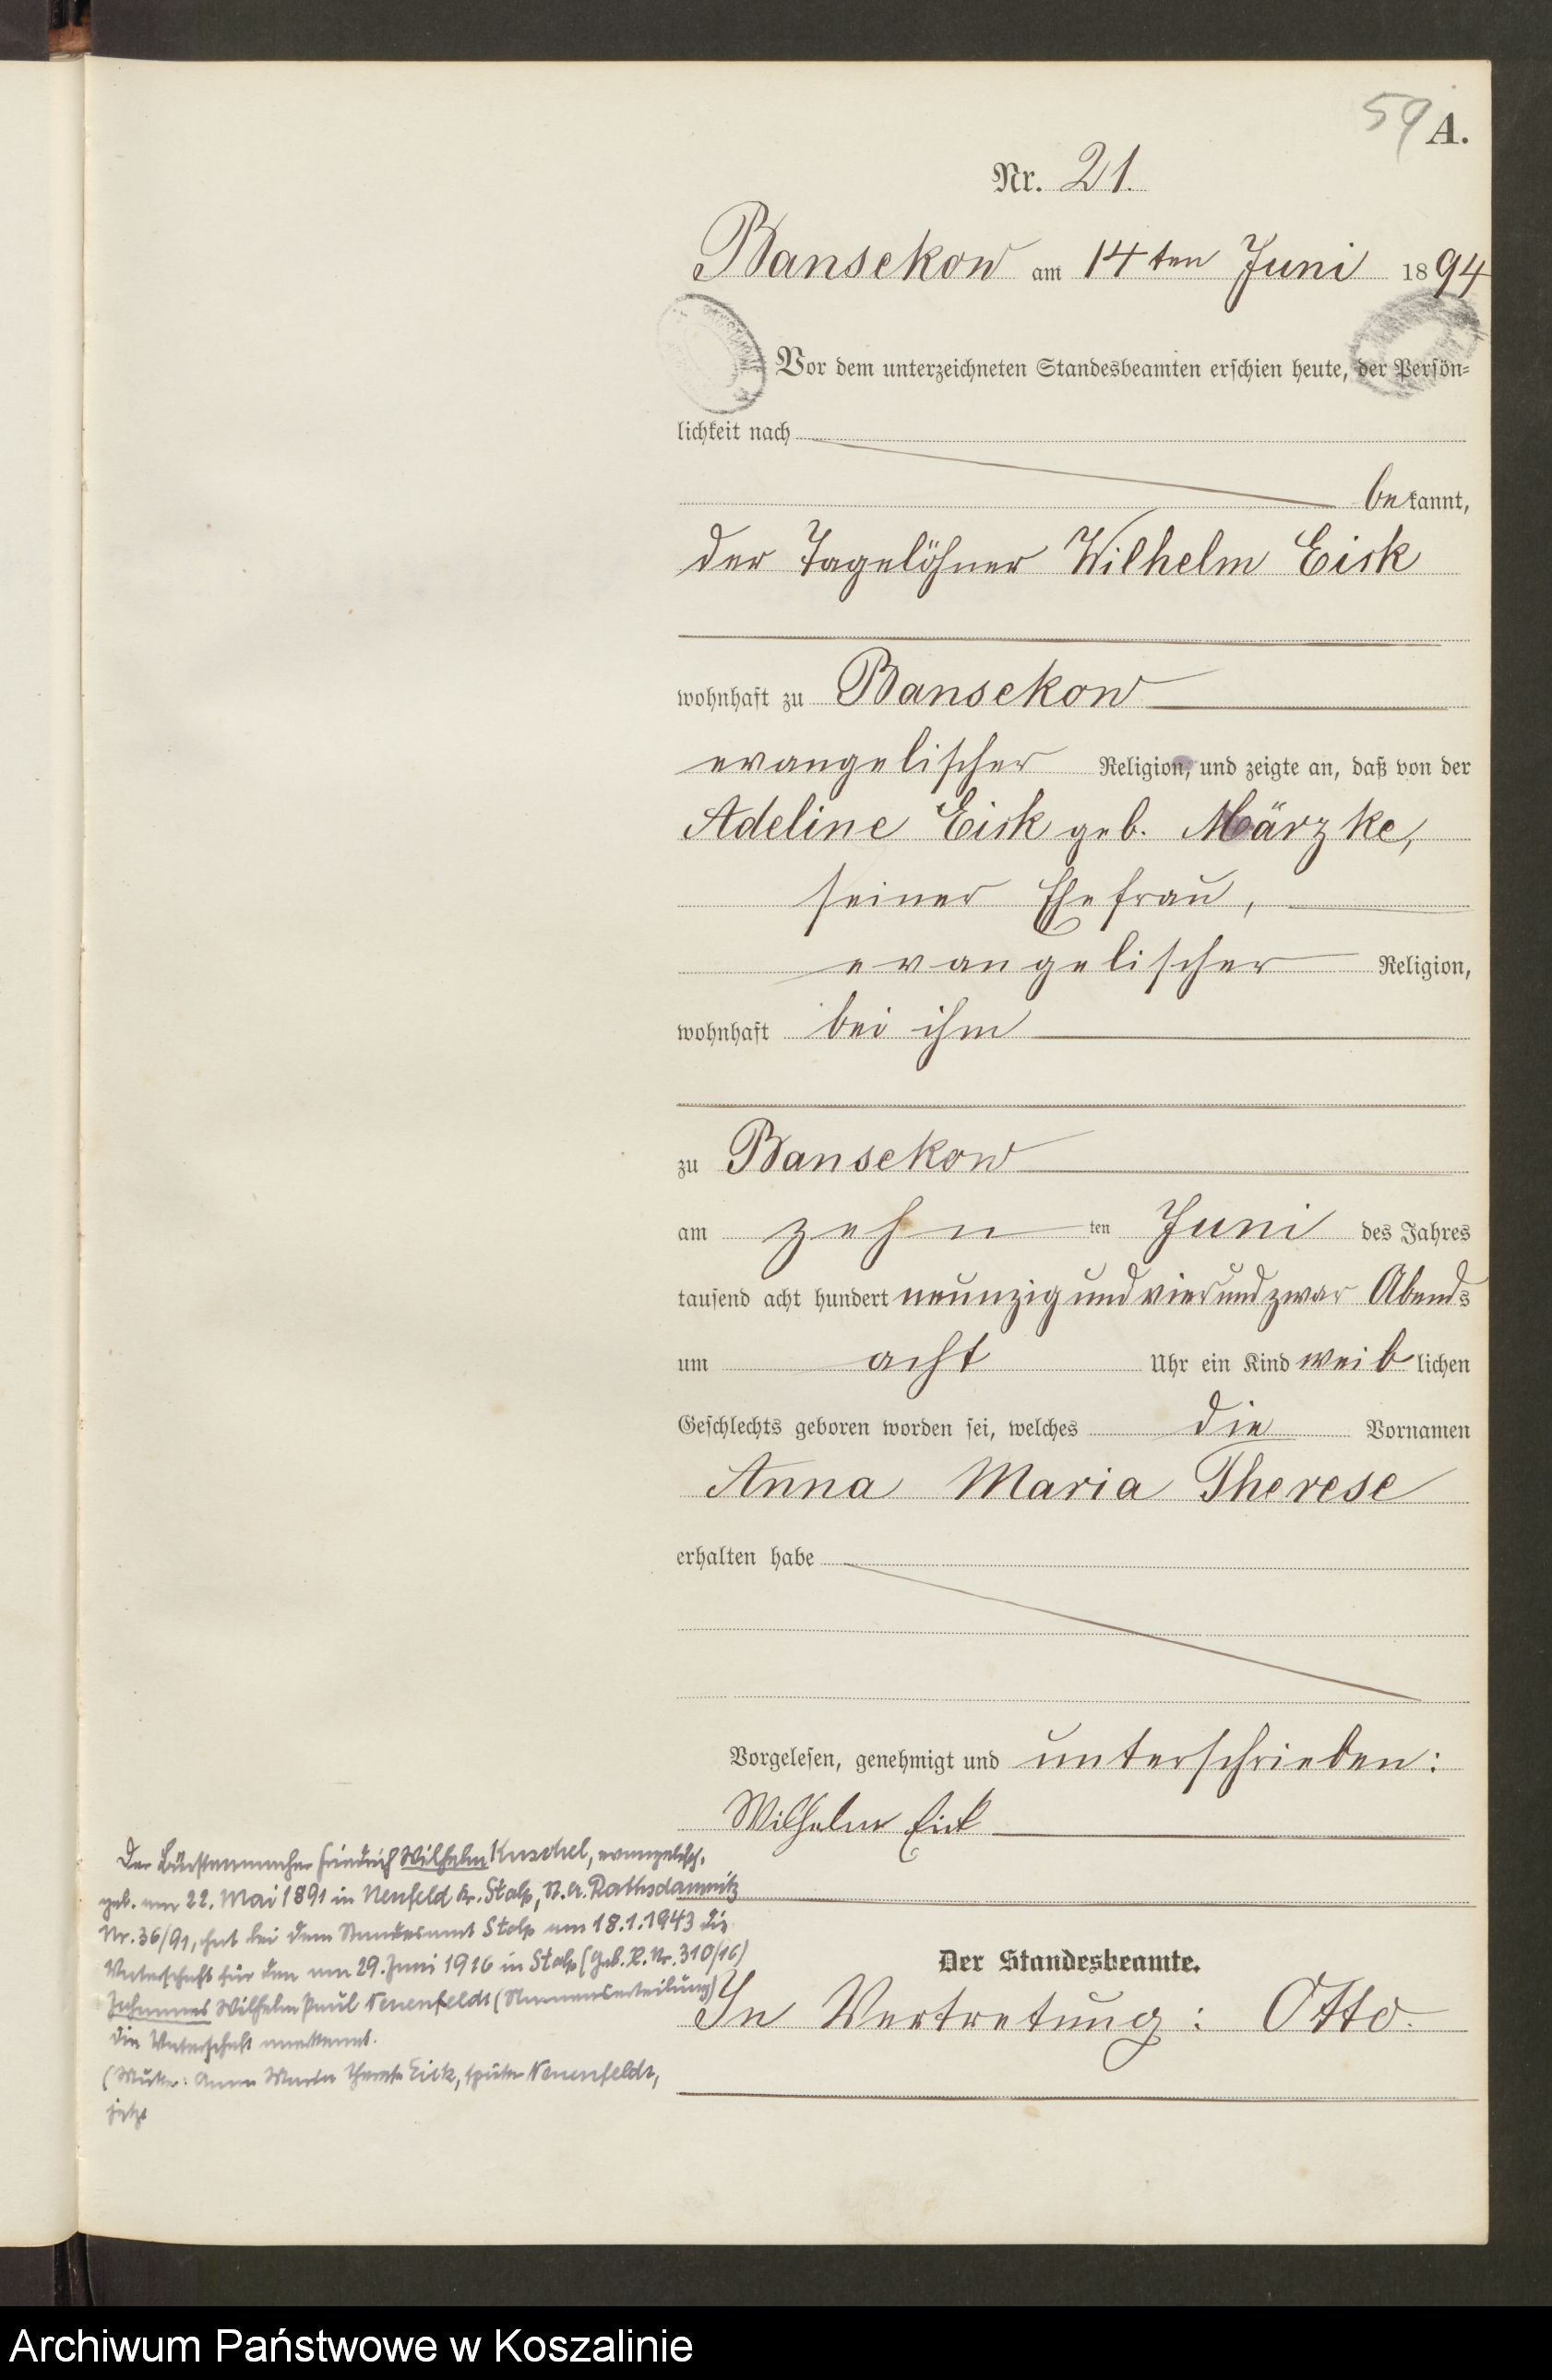 59 A.
Nr. 21.
Bansekow am 14ten Juni 1894
Vor dem unterzeichneten Standesbeamten erschien heute, der Persön-
lichkeit nach
bekannt,
der Tagelöhner Wilhelm Eick
wohnhaft zu Bansekow
evangelischer Religion, und zeigte an, daß von der
Adeline Eick geb. Märzke,
seiner Ehefrau,
evangelischer Religion,
wohnhaft bei ihm
zu Bansekow
am zehn ten Juni des Jahres
tausend acht hundert neunzig und vier und zwar Abends
um acht Uhr ein Kind weiblichen
Geschlechts geboren worden sei, welches die Vornamen
Anna Maria Therese
erhalten habe
Vorgelesen, genehmigt und unterschrieben:
Wilhelm Eick
Der Standesbeamte.
In Vertretung: Otto.
Der Bürstenmacher Friedrich Wilhelm Kuschel, evangelisch,
geb. am 22. Mai 1891 in Neufeld Kr. Stolp, St. A. Rathsdamnitz
Nr. 36/91, hat bei dem Standesamt Stolp am 18.1.1943 die
Vaterschaft für den am 29. Juni 1916 in Stolp (Geb. R. Nr. 310/16)
Johannes Wilhelm Paul Neuenfeldt (Namenserteilung)
die Vaterschaft anerkannt.
(Mutter: Anna Maria Therese Eick, später Neuenfeldt,
jetzt
Archiwum Państwowe w Koszalinie